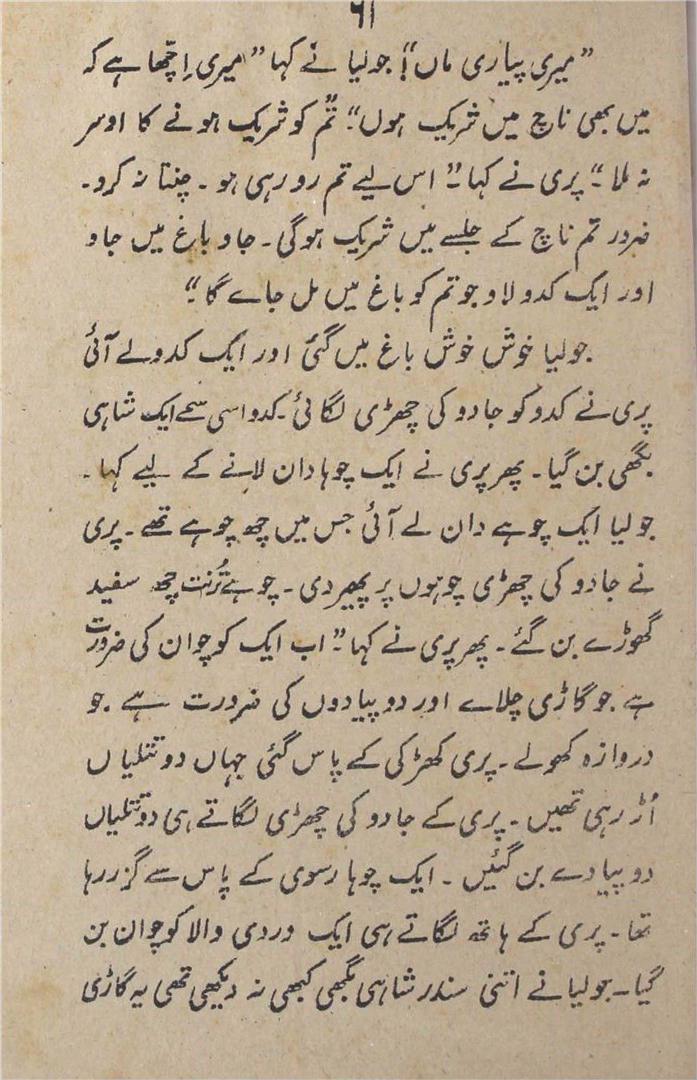 ۶۱
”میری پیاری ماں“! جولیا نے کہا ”میری اِچھا ہے کہ
میں بھی ناچ میں شریک ہوں“۔ ”تُم کو شریک ہونے کا اوسر
نہ ملا“۔ پری نے کہا۔ ”اس لیے تم رو رہی ہو۔ چنتا نہ کرو۔
ضرور تم ناچ کے جلسے میں شریک ہوگی۔ جاو باغ میں جاو
اور ایک کدو لاو جو تم کو باغ میں مل جاے گا“۔
جولیا خوش خوش باغ میں گئی اور ایک کدو لے آئی
پری نے کدو کو جادو کی چھڑی لگائی۔ کدو اسی سمے ایک شاہی
بگھی بن گیا۔ پھر پری نے ایک چوہا دان لانے کے لیے کہا۔
جولیا ایک چوہے دان لے آئی جس میں چھ چوہے تھے۔ پری
نے جادو کی چھڑی چوہوں پر پھیر دی۔ چوہے تُرنت چھ سفید
گھوڑے بن گئے۔ پھر پری نے کہا۔ ”اب ایک کوچوان کی ضرورت
ہے جو گاڑی چلاے اور دو پیادوں کی ضرورت ہے جو
دروازہ کھولے۔ پری کھڑکی کے پاس گئی جہاں دو تتلیاں
اُڑ رہی تھیں۔ پری کے جادو کی چھڑی لگاتے ہی دو تتلیاں
دو پیادے بن گئیں۔ ایک چوہا رسوی کے پاس سے گزر رہا
تھا۔ پری کے ہاتھ لگاتے ہی ایک وردی والا کوچوان بن
گیا۔ جولیا نے اتنی سندر شاہی بگھی کبھی نہ دیکھی تھی یہ گاڑی